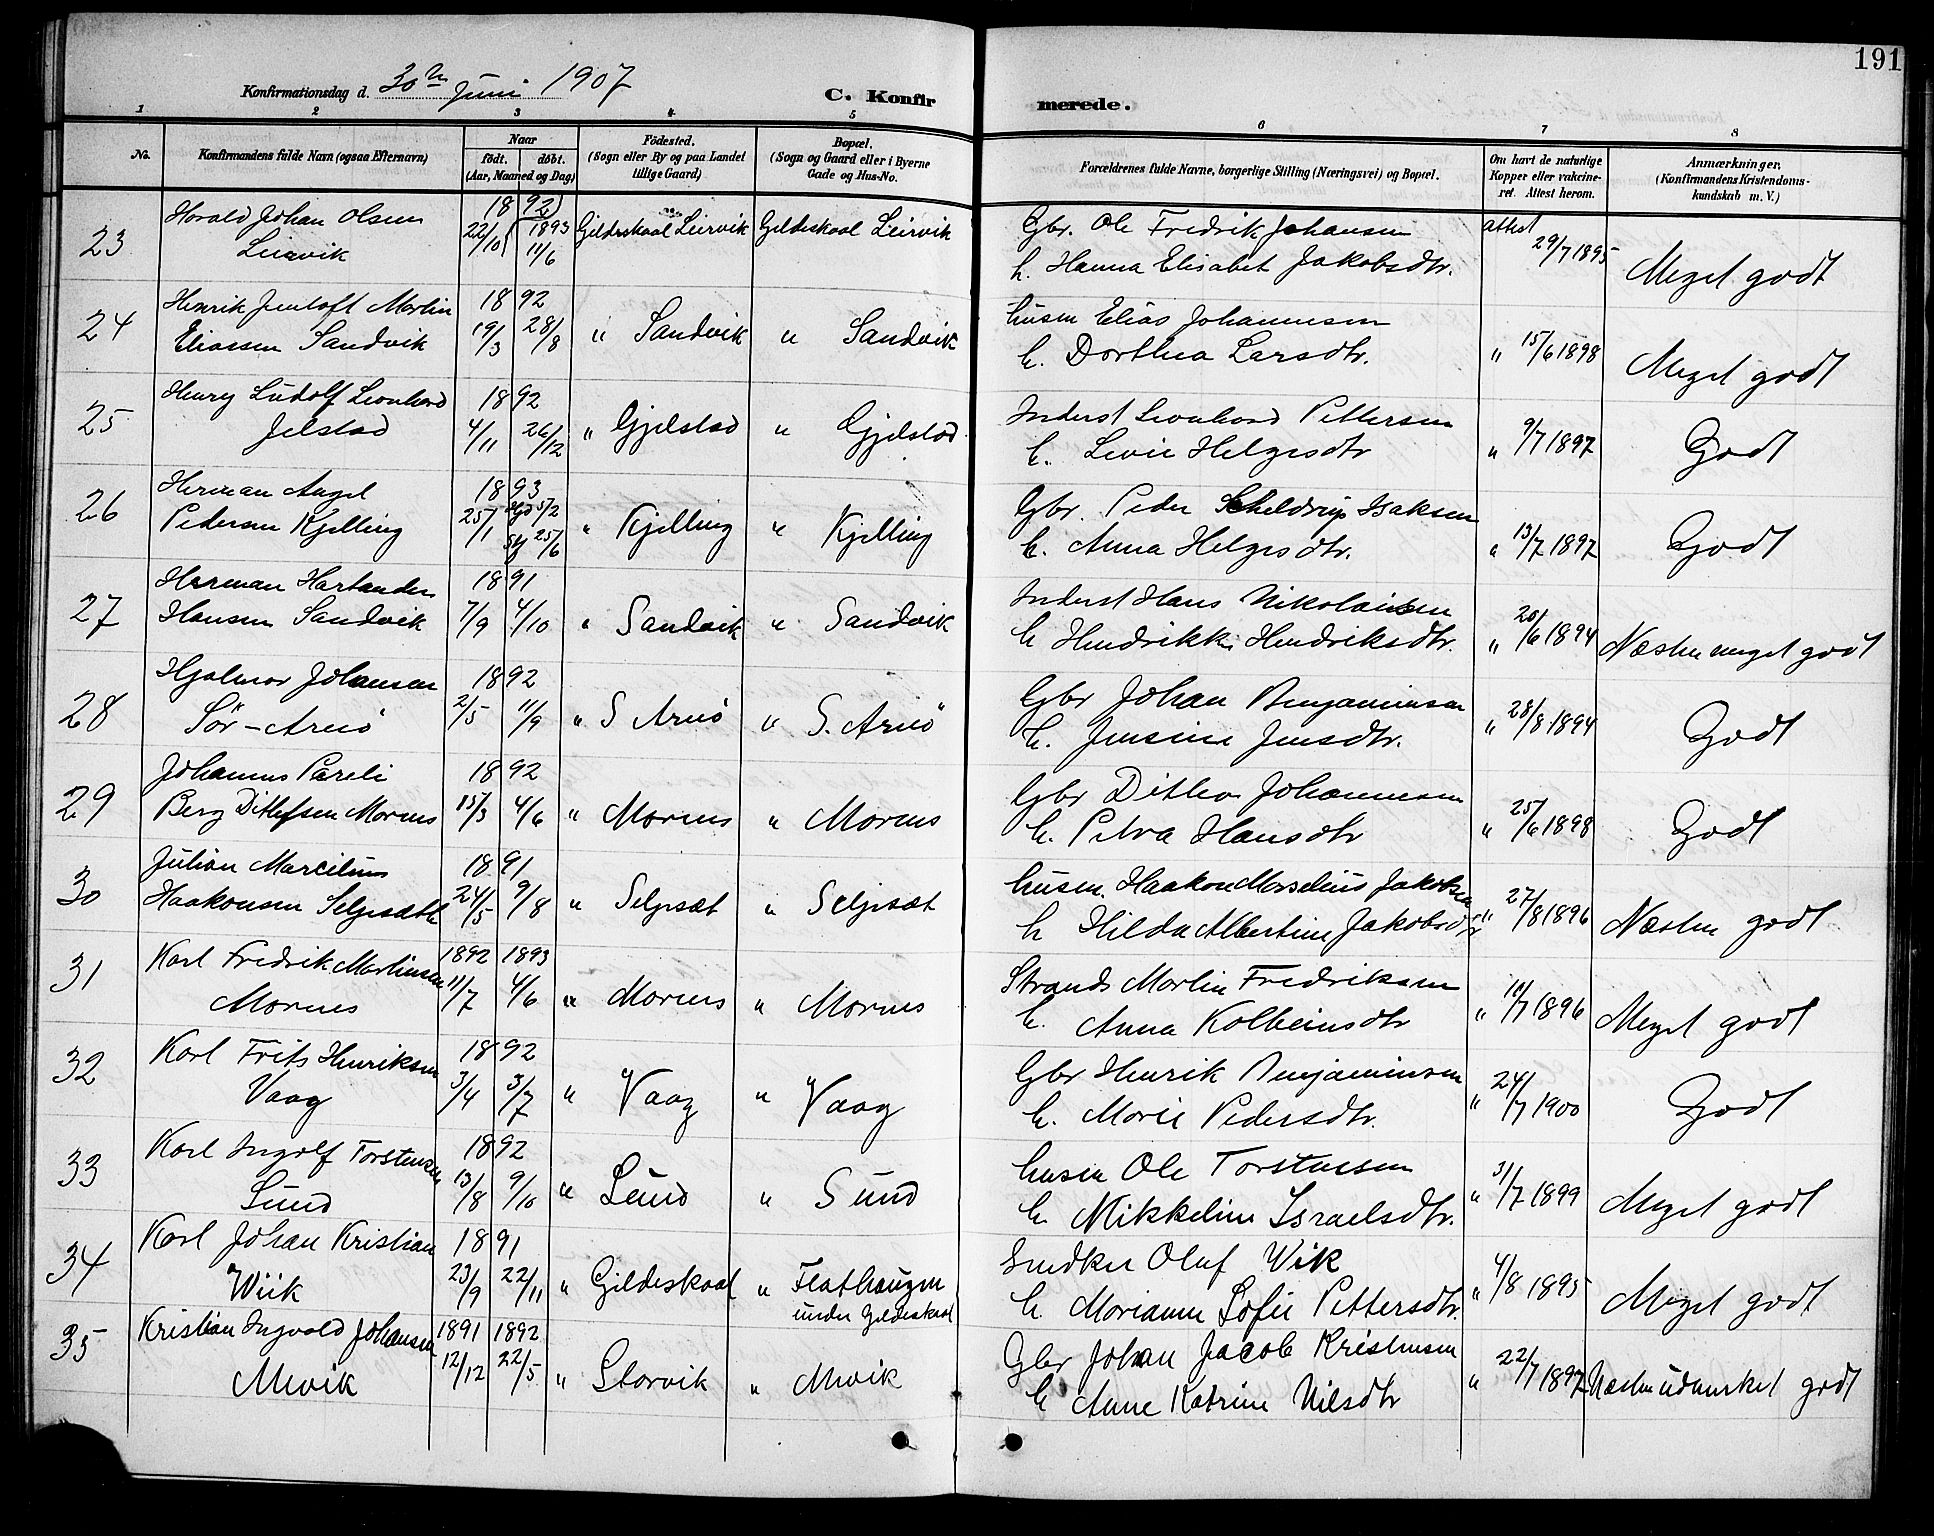 191
Konfirmationsdag d. 30te Juni 1907
C. Konfirmerede.
1 2 3 4 5 6 7 8
No. Konfirmandens fulde Navn (ogsaa Efternavn) Naar født. døbt. (Aar, Maaned og Dag) Fødested. (Sogn eller By og paa Landet tillige Gaard) Bopæl. (Sogn og Gaard eller i Byerne Gade og Hus-No. Forældrenes fulde Navne, borgerlige Stilling (Næringsvei) og Bopæl. Om havt de naturlige Kopper eller vakcineret. Attest herom. Anmærkninger. (Konfirmandens Kristendomskundskab m. V.)
Harald Johan Olsen 18 92 Gildeskaal Leirvik Gildeskaal Leirvik Gbr. Ole Fredrik Johansen attest
23 Leirvik 22/10 1893 11/6 h. Hanna Elisabet Jakobsdtr. 29/7 1895 Meget godt
Henrik Jentoft Martin 18 92 husm Elias Johannesen
24 Eliassen Sandvik 19/3 28/8 " Sandvik " Sandvik h. Dorthea Larsdtr. " 15/6 1898 Meget godt
Henry Ludolf Leonhard 18 92 Inderst Leonhard Pettersen
25 Jelstad 4/11 26/12 " Gjelstad " Gjelstad h. Levie Helgesdtr " 9/7 1897 Godt
Herman Angel 18 93 Gbr. Peder Scheldrup Isaksen
26 Pedersen Kjelling 25/1 hjd 5/2 25/6 " Kjelling " Kjelling h. Anna Helgesdtr. " 13/7 1897 Godt
Herman Hartanden 18 91 Inderst Hans Nikolaisen
27 Hansen Sandvik 7/9 4/10 " Sandvik " Sandvik h Hendrikke Hendriksdtr. " 20/6 1894 Næsten meget godt
Hjalmar Johansen 18 92 Gbr Johan Benjaminsen
28 Sör-Arnö 2/5 11/9 " S Arnö " S. Arnö h. Jensine Jensdtr. " 28/8 1894 Godt
Johannes Pareli 18 92 Gbr Ditlev Johannesen
29 Berg Ditlefsen Mornes 15/3 4/6 " Mornes " Mornes h. Petra Hansdtr " 25/6 1898 Godt
Julian Marcelius 18 91 husm. Haakon Marselius Jakobsen
30 Haakonsen Seljesæth 24/5 9/8 " Seljesæt " Seljesæt h Hilda Albertine Jakobsdtr " 27/8 1896 Næsten godt
Karl Fredrik Martinsen 1892 1893 Strands Martin Fredriksen
31 Mornes 11/7 4/6 " Mornes " Mornes h. Anna Kolbeinsdtr " 10/7 1896 Meget godt
Karl Frits Henriksen 18 92 Gbr Henrik Benjaminsen
32 Vaag 3/4 3/7 " Vaag " Vaag h. Marie Pedersdtr. " 24/7 1900 Godt
Karl Ingolf Torstensen 18 92 husm Ole Torstensen
33 Sund 13/8 9/10 " Sund " Sund h. Mikkeline Israelsdtr. " 31/7 1899 Meget godt
Karl Johan Kristian 18 91 Snedker Oluf Wik
34 Wiik 23/9 22/11 " Gildeskaal " Flathaugen under Gildeskaal h Mariann Sofie Pettersdtr. " 4/8 1895 Meget godt
Kristian Ingvald Johansen 1891 1892 Gbr Johan Jacob Kristensen
35 Mevik 12/12 22/5 " Storvik " Mevik h Anne Katrine Nilsdtr " 22/7 1897 Næsten udmerket godt